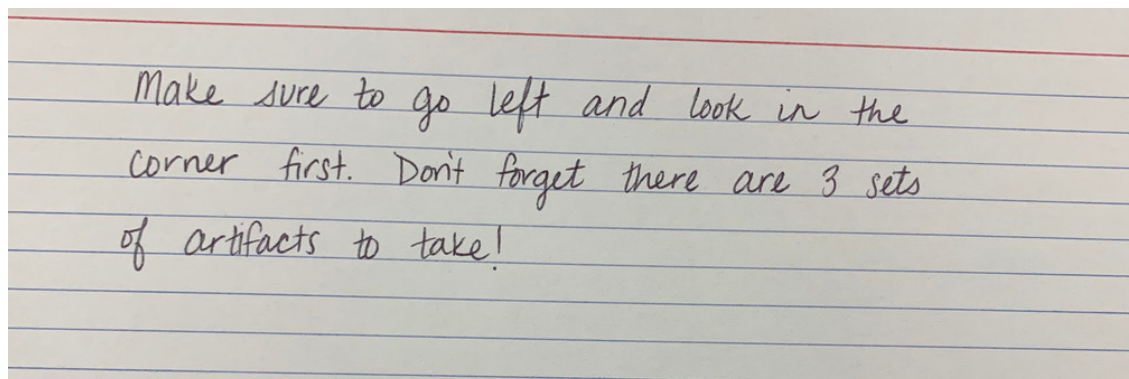 Make sure to go left and look in the
corner first. Don't forget there are 3 sets
of artifacts to take!